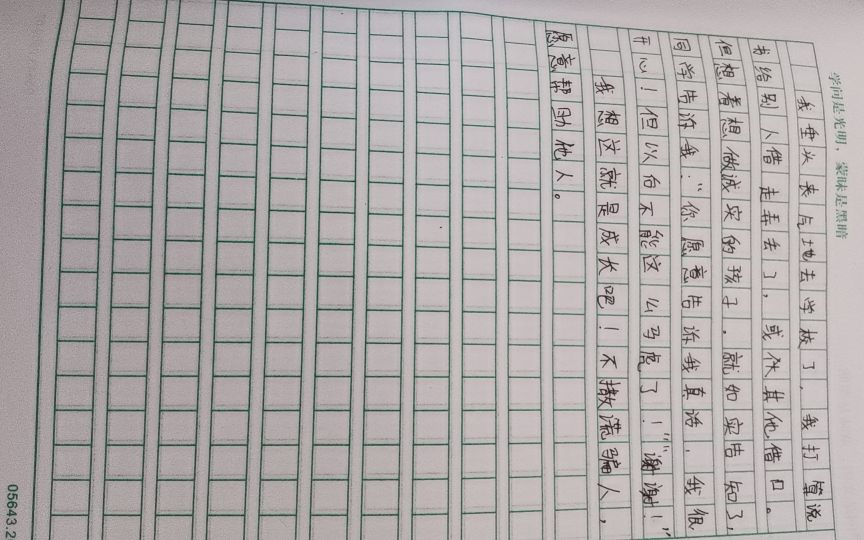 学问是光明，蒙昧是黑暗
我垂头丧气地去学校了，我打算说
书给别人借走弄丢了，或作其他借口。
但想着想做诚实的孩子。就如实告知了，
同学告诉我：“你愿意告诉我真话，我很
开心！但以后不能这么马虎了！”“谢谢！”
我想这就是成长吧！不撒谎骗人，
愿意帮助他人。
05643.2